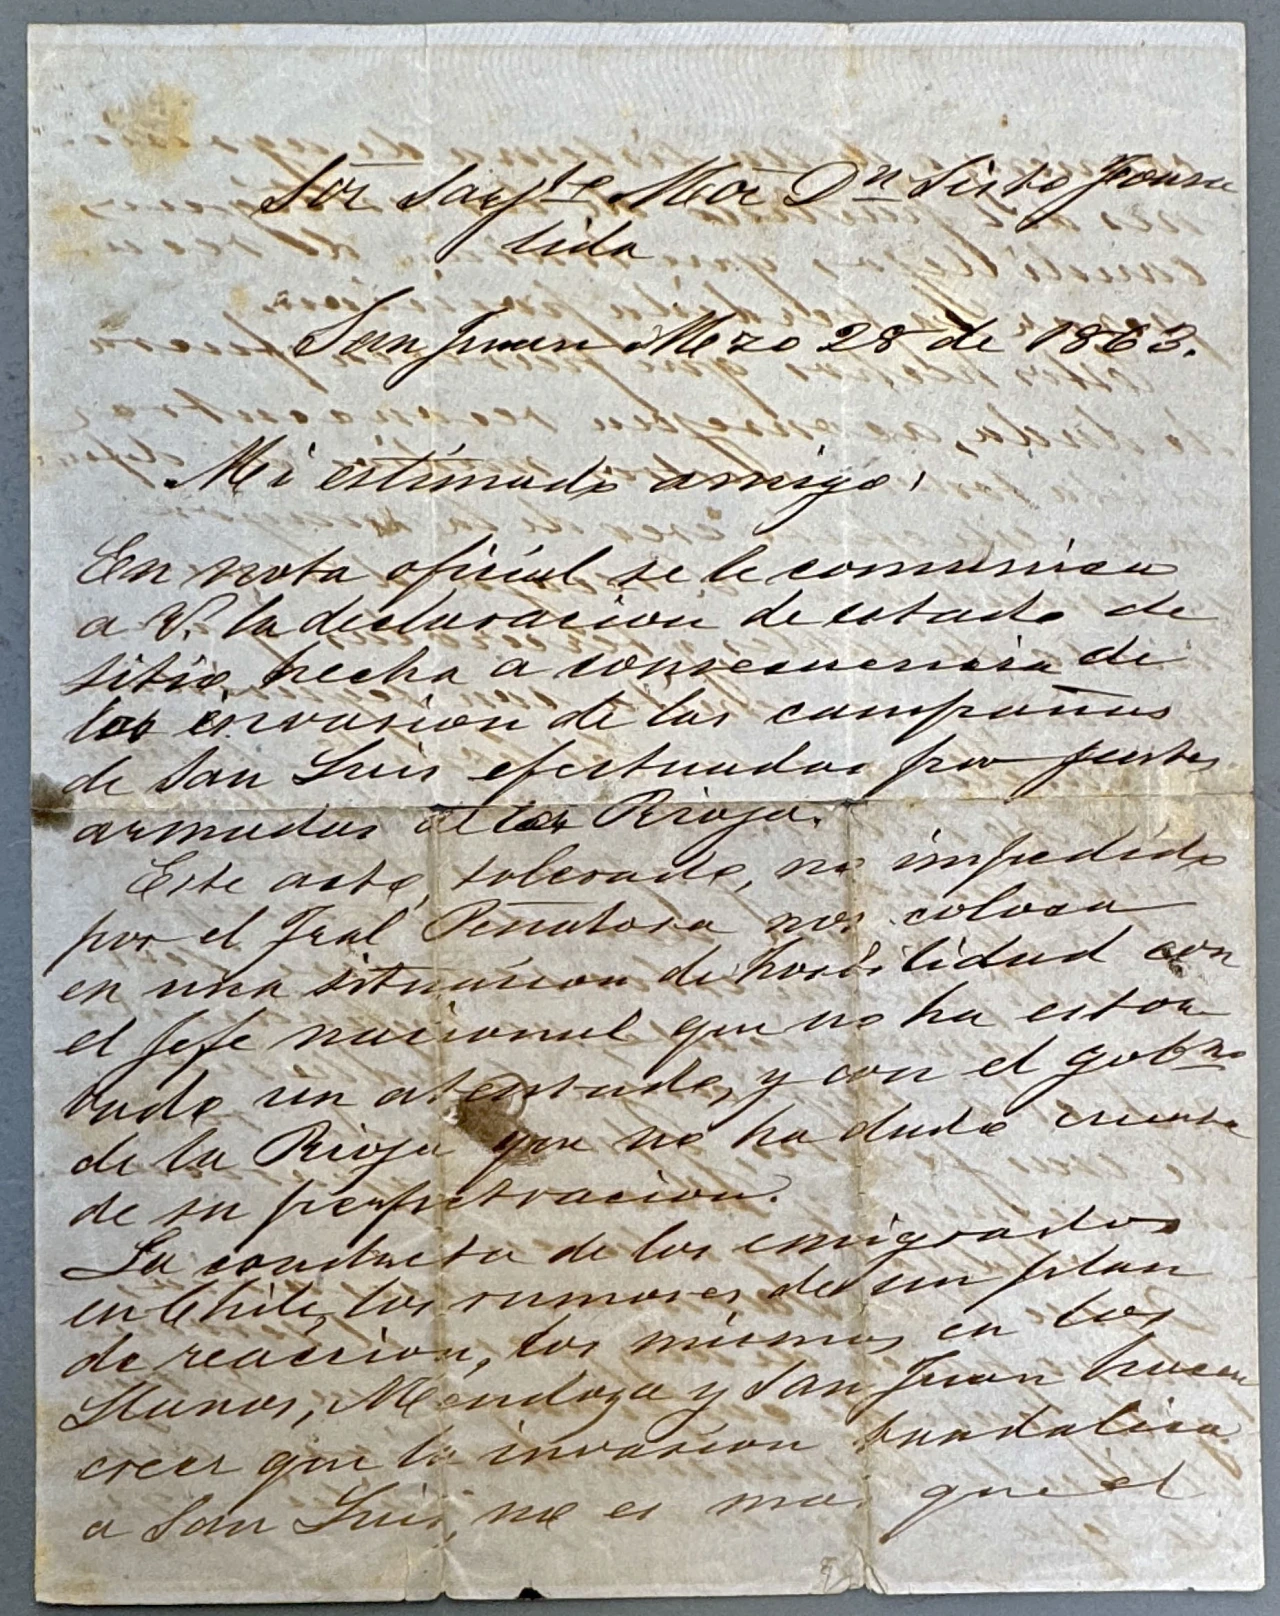 Sōr Sargte Mōr Dn Sisto Fonsa
lida
San Juan Mzo 28 de 1863.
Mi estimado amigo,
En nota oficial se le comunica
a V. la declaracion de estado de
sitio, hecha a consecuencia de
la invasion de las campañas
de San Luis efectuada por partes
armadas de la Rioja.
Este acto, tolerado, no impedido
por el Jral Peñalosa nos coloca
en una situacion de hostilidad con
el Jefe nacional que no ha estor
vado un atentado, y con el gobno
de la Rioja que no ha dado cuenta
de su perpetracion.
La conducta de los emigrados
en Chile, los rumores de un plan
de reaccion, los mismos en los
Llanos, Mendoza y San Juan hacen
creer que la invasion bandalica
a San Luis, no es mas que el